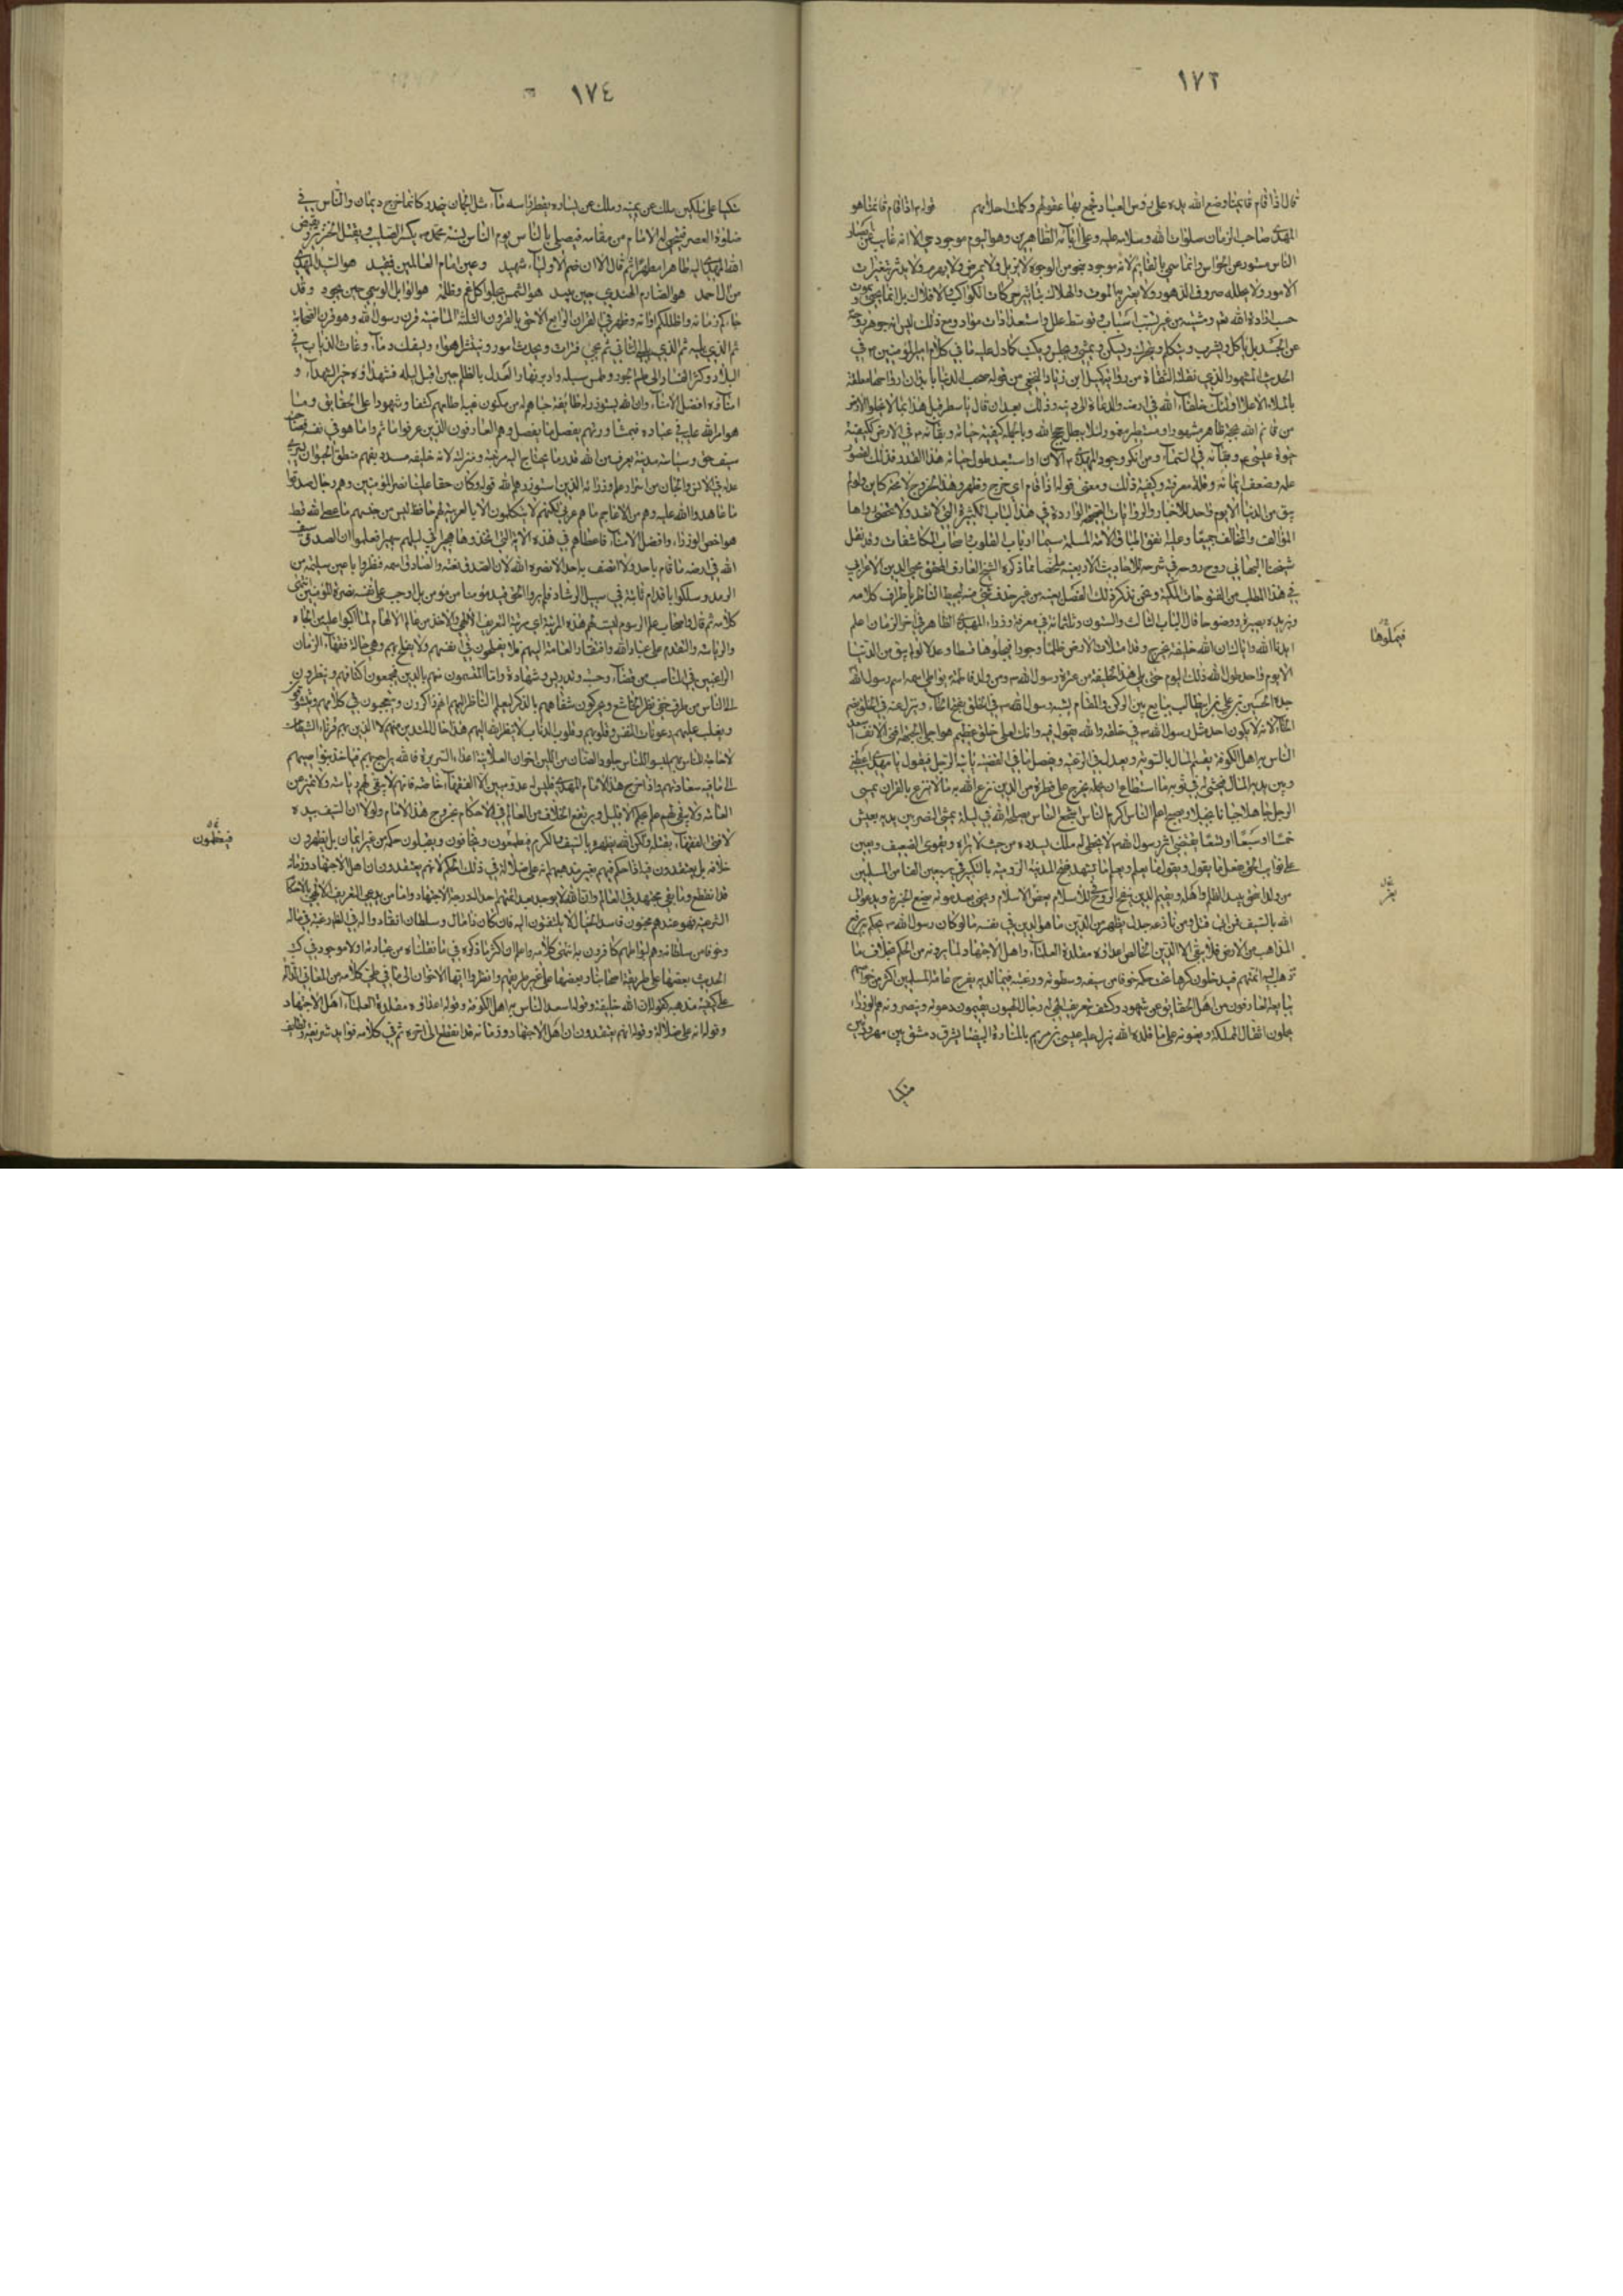 ١٧٣
قال اذا قام قائمنا وضع الله يده على رؤس العباد فجمع بها عقولهم وكملت احلامهم قوله اذا قام قائمنا هو
المهدي صاحب الزمان صلوات الله وسلامه عليه وعلى آبائه الطاهرين وهو اليوم موجود حي الا انه غائب عن
الناس مستور عن الحواس وانما سمي بالقائم لانه موجود بنحو من الوجود لا
الامور ولا صروف الدهور ولا الموت والهلاك بتأثير حركات الكواكب والافلاك بل انما
حسب ارادة الله من غير اسباب وتوسط علل واستعدادات مواد ومع ذلك ليس انه جوهر
عن الجسد بل يأكل ويشرب ويتكلم ويتحرك ويسكن ويمشي ويجلس ويكتب كما دل عليه ما في كلام امير المؤمنين في
الحديث المشهور الذي نقلته الثقاة من رواية كميل ابن زياد النخعي من قوله صحبوا الدنيا بابدان ارواحها معلقة
بالملاء الاعلى اولئك خلفاء الله في ارضه والدعاة الى دينه وذلك بعد ان قال هذا لا تخلو الارض
من قائم لله بحجة ظاهر مشهور او مستتر مغمور لئلا يبطل حجج الله وبالجملة كيفية حياته وبقائه في الارض ككيفية
حيوة عيسى وبقائه في السماء ومن انكر وجود المهدي الآن او استبعد طول حياته هذا القدر فذلك لقصور
علمه وضعف ايمانه وقلة معرفته وكيفية ذلك ومعنى قوله اذا قام اي خرج وظهر وهذا الخروج لا محالة كاين ولو لم
يبق من الدنيا الا يوم واحد للاخبار والروايات الصحيحة الواردة في هذا الباب الكثيرة التي لا تعد ولا تحصى رواها
المؤالف والمخالف جميعا وعليه الامة المسلمة سيما ارباب القلوب اصحاب المكاشفات وقد نقل
شيخنا البهائي روح روحه في شرحه للاحاديث الاربعين ملخصا مما ذكره الشيخ العارف المحقق محيي الدين الاعرابي
في هذا المطلب من الفتوحات المكية ونحن نذكر ذلك الفصل بعينه من غير حذف ليحيط الناظر باطراف كلامه
ويزيده بصيرة ووضوحا قال الباب الثالث والستون وثلثمائة في معرفة وزراء المهدي الظاهر في آخر الزمان اعلم
ايدنا الله واياك ان لله خليفة يخرج وقد امتلأت الارض ظلما وجورا فيملوها قسطا وعدلا لو لم يبق من الدنيا
الا يوم واحد طول الله ذلك اليوم حتى يلي هذا الخليفة من عترة رسول الله من ولد فاطمة يواطي اسمه اسم رسول الله
جده الحسين بن علي بن ابيطالب يبايع بين الركن والمقام يشبه رسول الله في الخلق بفتح الخاء وينزل عنه في الخلق بضم
الخاء لانه لا يكون احد مثل رسول الله في خلقه والله يقول فيه وانك لعلى خلق عظيم هو اجلى الجبهة اقنى الانف اسعد
الناس به اهل الكوفة يقسم المال بالسوية ويعدل في الرعية ويفصل في القضية يأتيه الرجل فيقول يا مهدي اعطني
وبين يديه المال فيحثي له في ثوبه ما استطاع ان يحمله يخرج على فترة من الدين يزع الله به ما لا يزع بالقران يمسي
الرجل جاهلا جبانا بخيلا ويصبح اعلم الناس اكرم الناس اشجع الناس يصلحه الله في ليلة يمشي النصر بين يديه يعيش
خمسا او سبعا او تسعا يقفو اثر رسول الله لا يخطي له ملك يسدده من حيث لا يراه ويقوي الضعيف ويعين
على نوايب الحق يفعل ما يقول ويقول ما يعلم ويعلم ما يشهد يفتح المدينة الرومية بالتكبير في سبعين الفا من المسلمين
من ولد اسحق يبيد الظلم واهله ويقيم الدين ينفخ الروح في الاسلام يعز الاسلام ويحيى بعد موته يضع الجزية ويدعو الى
الله بالسيف فمن ابى قتل ومن نازعه خذل يظهر من الدين ما هو الدين في نفسه ما لو كان رسول الله حيا يحكم به يرفع
المذاهب من الارض فلا يبقى الا الدين الخالص اعداؤه مقلدة العلماء اهل الاجتهاد لما يرونه من الحكم بخلاف ما
ذهب اليه ائمتهم فيدخلون كرها تحت حكمه خوفا من سيفه وسطوته ورغبة فيما لديه يفرح عامة المسلمين اكثر من خواصهم
يبايعه العارفون من اهل الحقايق عن شهود وكشف بتعريف الهي له رجال الهيون يقيمون دعوته وينصرونه هم الوزراء
يحملون اثقال المملكة ويعينونه على ما قلده الله ينزل عليه عيسى بن مريم بالمنارة البيضاء شرقي دمشق بين مهرودتين
فيملؤها
متكيا
١٧٤
متكيا على ملكين ملك عن يمينه وملك عن يساره يقطر رأسه ماء مثل الجمان يتحدر كانما خرج من ديماس والناس في
صلوة العصر فيتنحى له الامام من مقامه فيصلي بالناس يؤم الناس بسنة محمد يكسر الصليب ويقتل الخنزير ويقبض
الله المهدي اليه طاهرا مطهرا ثم قال الا ان ختم الاولياء شهيد وعين امام العالمين فقيد هو السيد المهدي
من آل احمد هو الصارم الهندي حين يبيد هو الشمس يجلو كل غم وظلمة هو الوابل الوسمي حين يجود وقد
جاءكم زمانه واظلكم اوانه وظهر في القرن الرابع اللاحق بالقرون الثلثة الماضية قرن رسول الله وهو قرن الصحابة
ثم الذي يليه ثم الذي يلي الثاني ثم يجيء فترات وتحدث امور وتنتشر اهواء ويسفك دماء وعاث الذياب في
البلاد وكثر الفساد الى ان طم الجور وطمس سبيله وادبر نهار العدل بالظلم حين اقبل ليله فشهداؤه خير الشهداء و
امناؤه افضل الامناء وان الله يستوزر له طايفة خباهم له من مكنون غيبه اطلعهم كشفا وشهودا على الحقايق وما
هو امر الله عليه في عباده فبمشاورتهم يفصل ما يفصل وهم العارفون الذين عرفوا ما ثم واما هو في نفسه فصاحب
سيف حق وسياسة مدنية يعرف من الله قدر ما يحتاج اليه مرتبته ومنزله لانه خليفة مسدد يفهم منطق الحيوان يسري
عدله في الانس والجان من اسرار علم وزرائه الذين استوزرهم الله قوله وكان حقا علينا نصر المؤمنين وهم رجال صدقوا
ما عاهدوا الله عليه وهم من الاعاجم ما فيهم عربي لكنهم لا يتكلمون الا بالعربية لهم حافظ ليس من جنسهم ما عصى الله قط
هو اخص الوزراء وافضل الامناء فاعطاهم في هذه الآية التي اتخذوها هجيراً في ليلهم سميرا فعلموا ان الصدق سيف
الله في ارضه ما قام باحد ولا اتصف به احد الا نصره الله لان الصدق نعته والصادق اسمه فنظروا باعين سليمة من
الرمد وسلكوا باقدام ثابتة في سبيل الرشاد فلم يروا الحق قيد مؤمنا من مؤمن بل اوجب على نفسه نصرة المؤمنين انتهى
كلامه ثم قال واصحاب علم الرسوم ليست لهم هذه المرتبة اي مرتبة التعريف الالهي والاخذ من عالم الالهام لما اكبوا عليه من الجاه
والرياسة والتقدم على عباد الله وافتقار العامة اليهم فلا يفلحون في انفسهم ولا يفلح بهم وهي حالة فقهاء الزمان
الراغبين في المناصب من قضاء وحسبة وتدريس وشهادة واما المتسمون منهم بالدين فيجمعون اكتافهم وينظرون
الى الناس من طرف خفي نظر الخاشع ويحركون شفاههم بالذكر ليعلم الناظر اليهم انهم ذاكرون ويتعجمون في كلامهم ويتشدقون
ويغلب عليهم رعونات النفس وقلوبهم قلوب الذئاب لا ينظر الله اليهم هذا حال المتدين منهم لا الذين هم قرناء الشيطان
لا حاجة لله بهم لبسوا للناس جلود الضأن من اللين اخوان العلانية اعداء السريرة فالله يراجع بهم فياخذ بنواصيهم
الى ما فيه سعادتهم واذا خرج هذا الامام المهدي فليس له عدو مبين الا الفقهاء خاصة فانهم لا يبقى لهم رياسة ولا تمييز عن
العامة ولا يبقى لهم علم بحكم الا قليل ويرتفع الخلاف من العالم في الاحكام بخروج هذا الامام ولولا ان السيف بيده
لافتى الفقهاء بقتله ولكن الله يظهره بالسيف والكرم فيطمعون ويخافون ويقبلون حكمه من غير ايمان بل يظهرون
خلافه بل يعتقدون فيه اذا حكم فيهم بغير مذهبهم انه على ضلالة في ذلك الحكم لانهم يعتقدون ان اهل الاجتهاد وزمانه
قد انقطع وما بقي مجتهد في العالم وان الله لا يوجد بعد ائمتهم احدا له درجة الاجتهاد واما من يدعي التعريف الالهي بالاحكام
الشرعية فهو عندهم مجنون فاسد الخيال لا يلتفتون اليه فان كان ذا مال وسلطان انقادوا له في الظاهر رغبة في ماله
وخوفا من سلطانه وهم ببواطنهم كافرون به انتهى كلامه واعلم ان اكثر ما ذكره في ما نقلناه من عباراته اولا موجود في كتب
الحديث بعضها على طريقة اصحابنا وبعضها على غير طريقهم وانظروا ايها الاخوان الى ما في طي كلامه من المعاني الدالة
على كيفية مذهبه كقوله ان لله خليفة وقوله اسعد الناس به اهل الكوفة وقوله اعداؤه مقلدة العلماء اهل الاجتهاد
وقوله انه على ضلالة وقوله انهم يعتقدون ان اهل الاجتهاد وزمانه قد انقطع الى آخره ثم في كلامه فوايد شريفة
فيطمعون